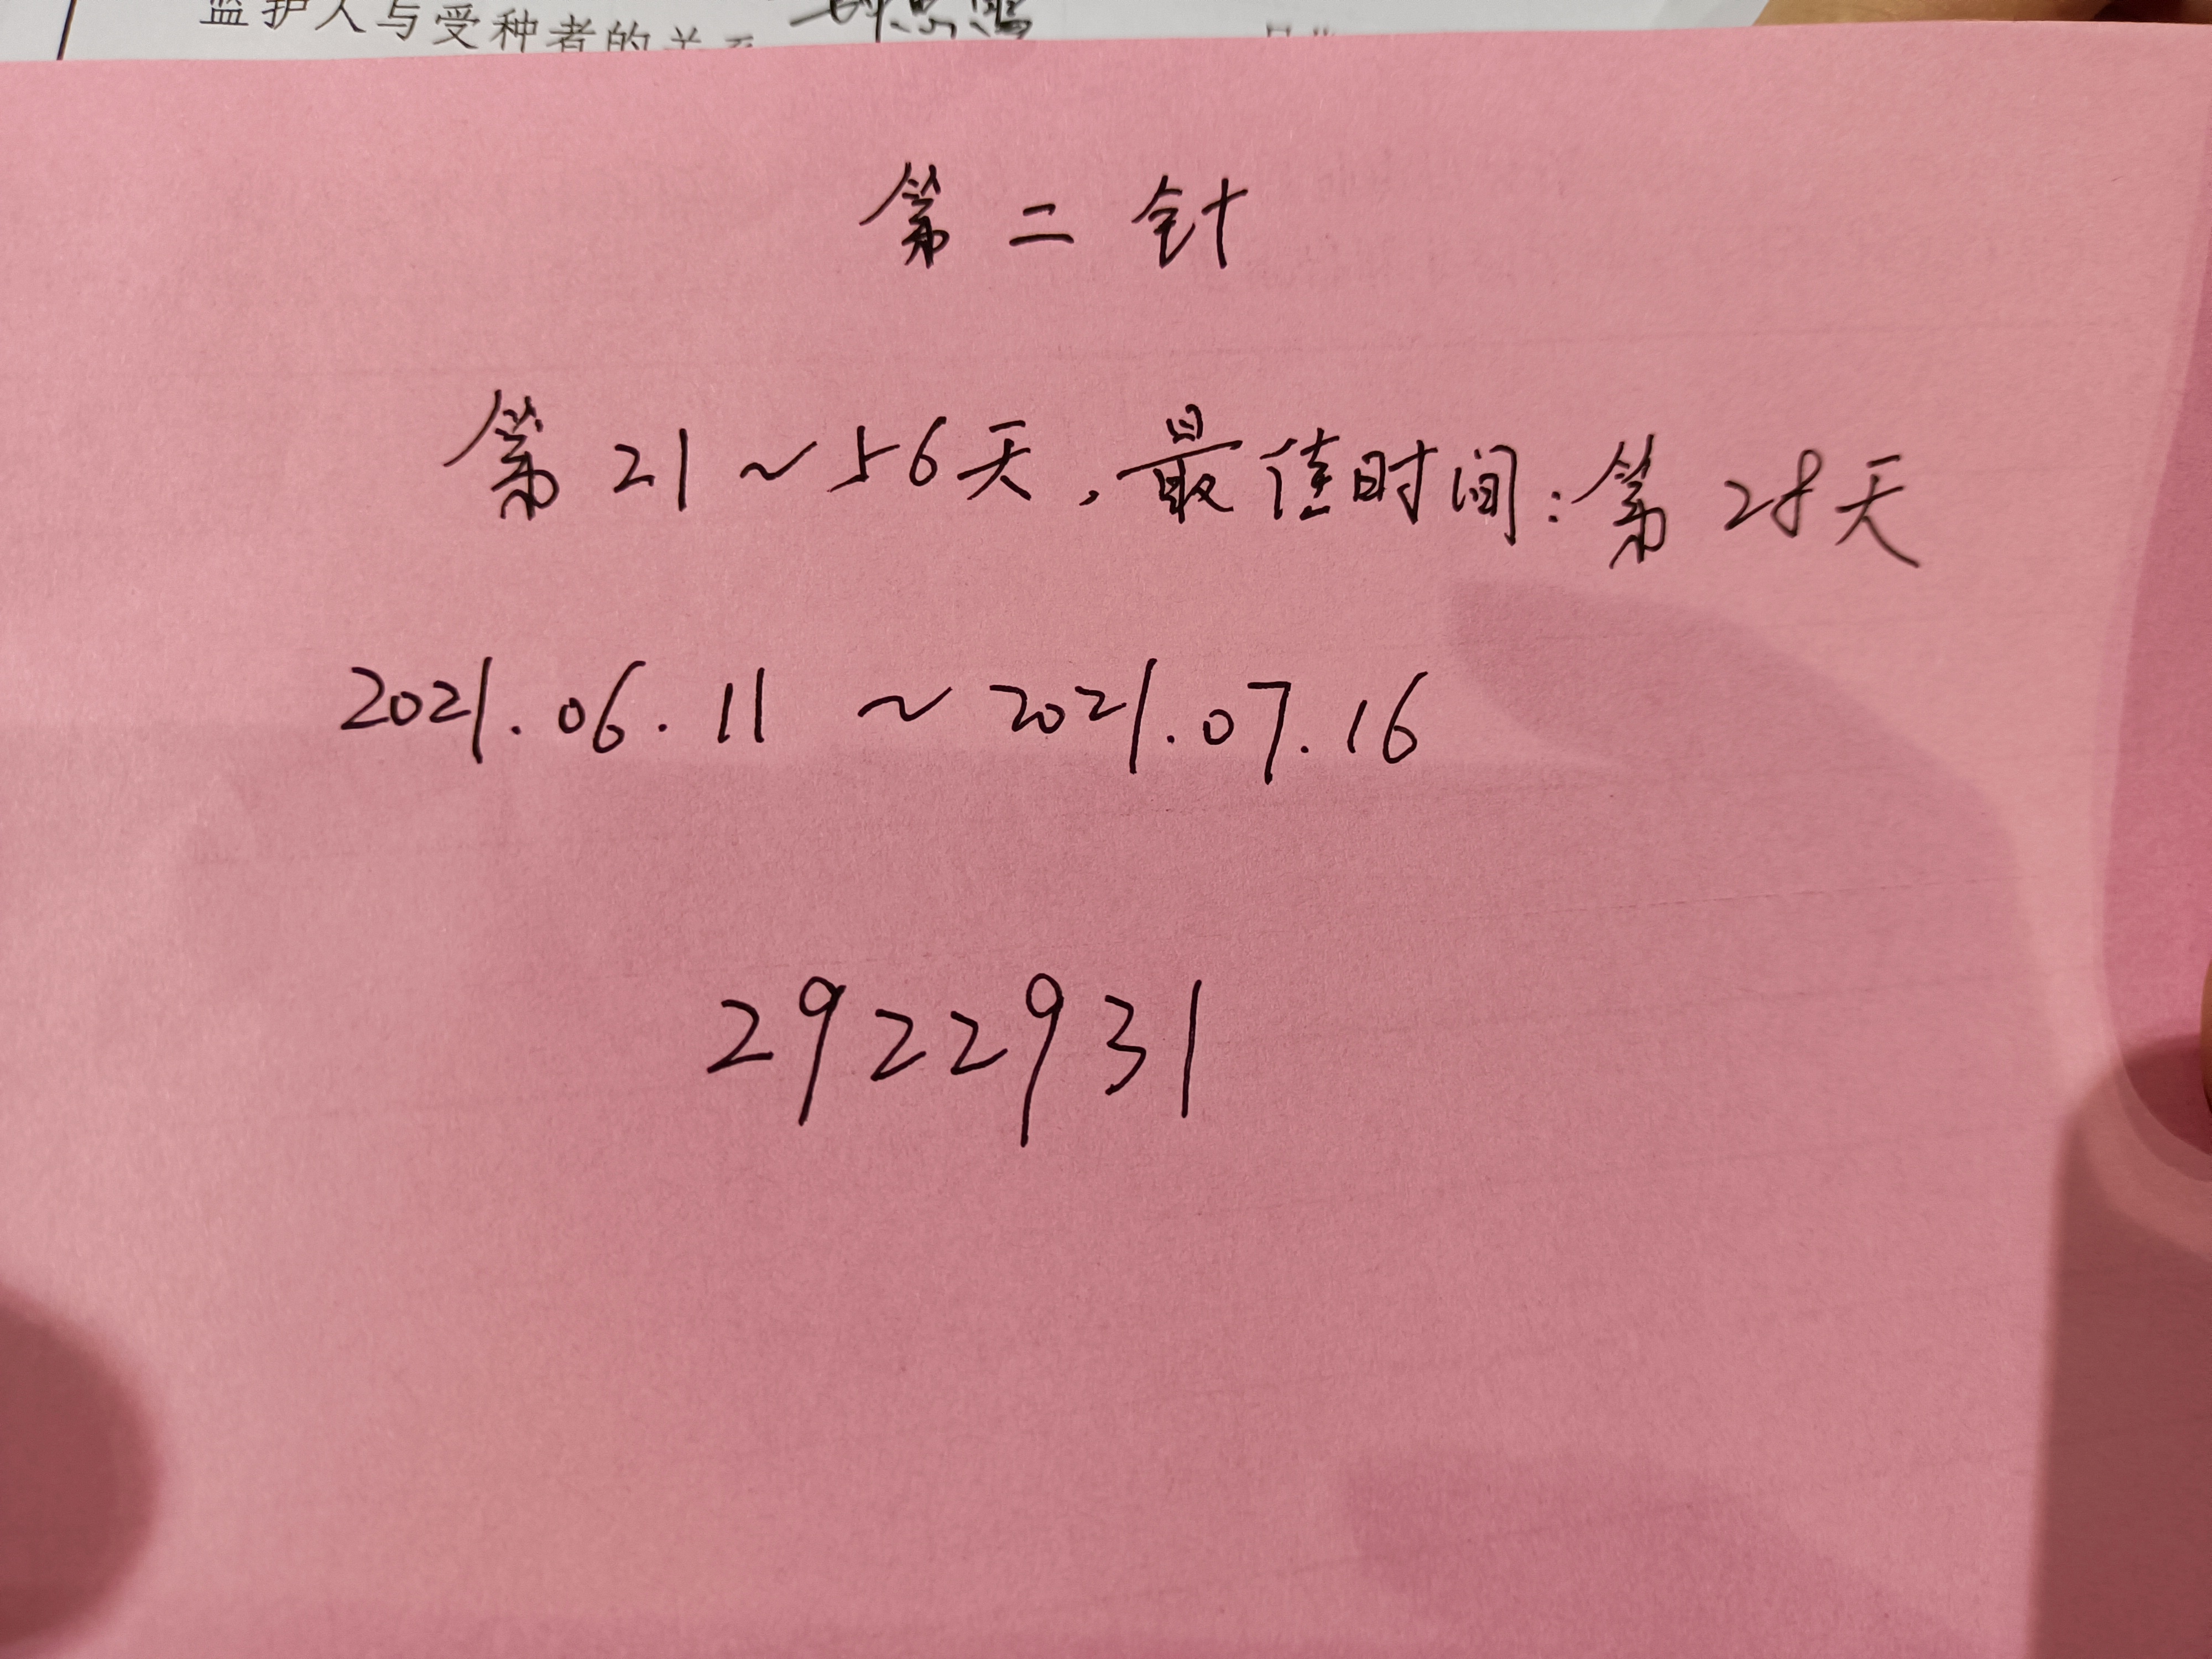 监护人与受种者的关系
第二针
第21~56天,最值时间:第28天
2021.06.11 ~ 2021.07.16
2922931